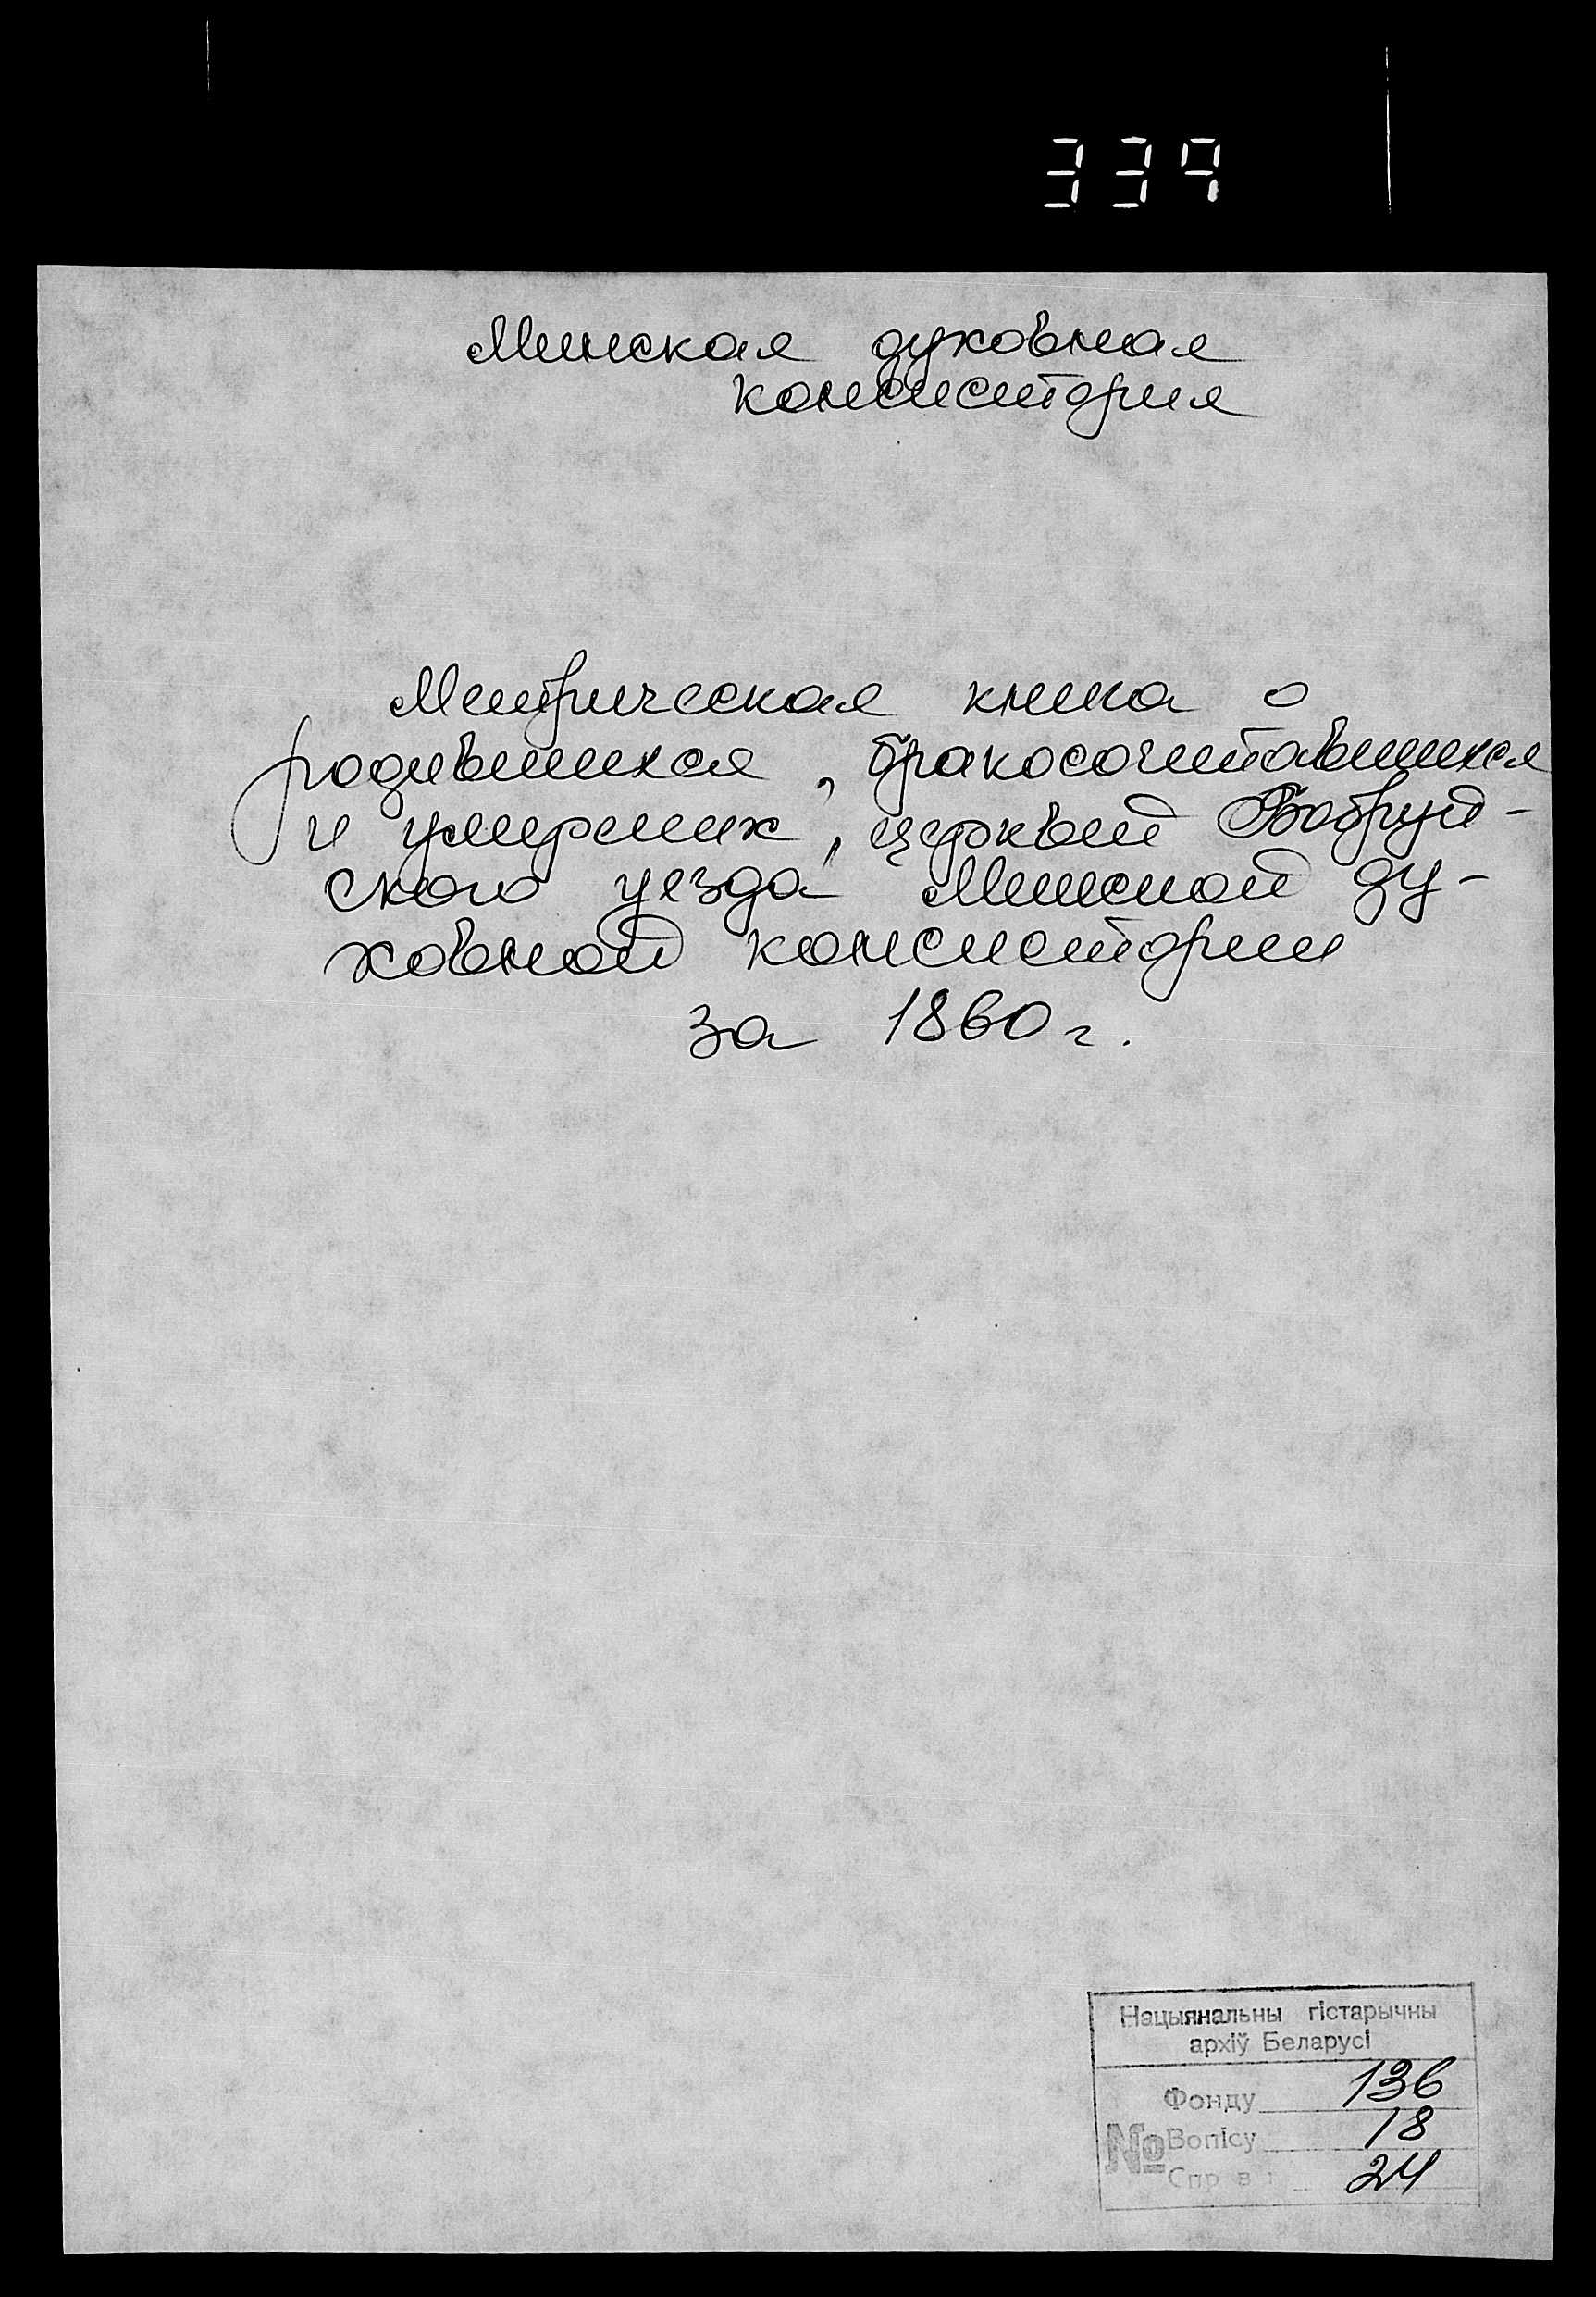 339
Минская духовная
консистория
Метрическая книга о
родившихся, бракосочитавшихся
и умерших, церквей Бобруй-
ского уезда Минской ду-
ховной консистории
за 1860 г.
Нацыянальны гістарычны
архіў Беларусі
Фонду 136
№ Вопісу 18
24